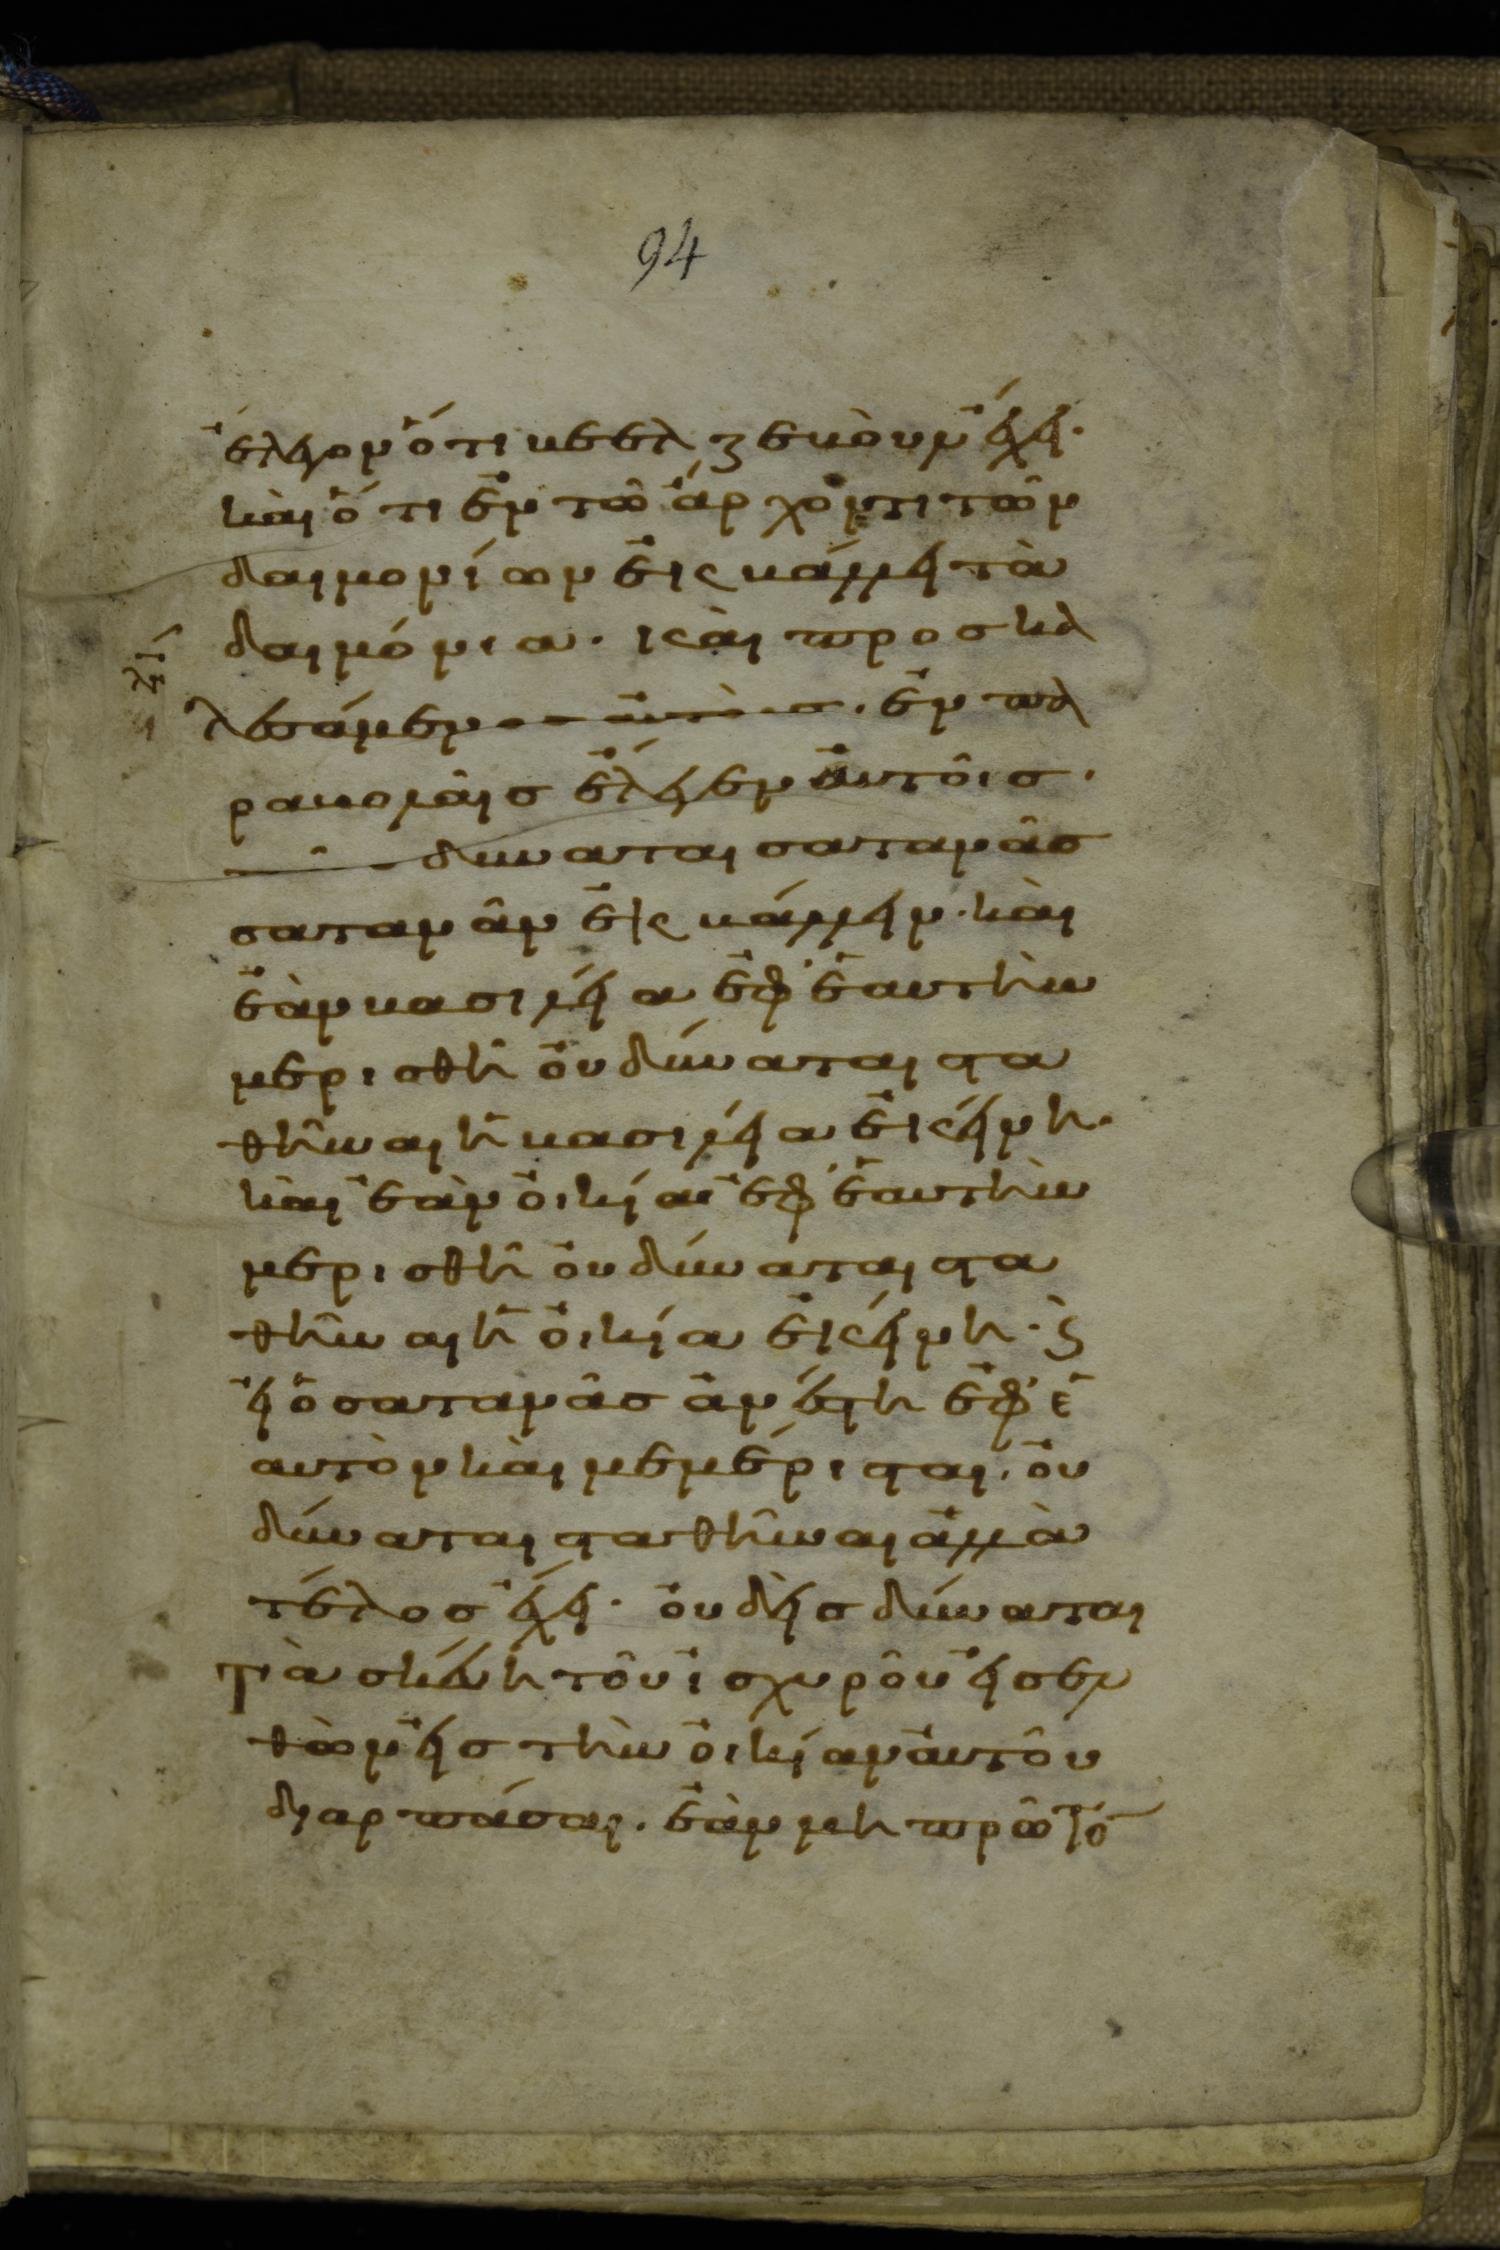 94
ἔλεγον ὅτι βεελζεβοὺν ἔχει·
καὶ ὅτι ἐν τῶ ἄρχοντι τῶν
δαιμονίων ἐκβάλλει τὰ
δαιμόνια. καὶ προσκα
λεσάμενος αὐτοὺς. ἐν πα
ραβολαῖς ἔλεγεν αὐτοῖς.
πῶς δύναται σατανᾶς
σατανᾶν ἐκβάλλειν. καὶ
ἐὰν βασιλεία ἐφ' ἑαυτὴν
μερισθῆ οὐ δύναται στα
θῆναι ἡ βασιλεία ἐκείνη.
καὶ ἐὰν οἰκία ἐφ' ἑαυτὴν
μερισθῆ οὐ δύναται στα
θῆναι ἡ οἰκία ἐκείνη. ϗ
εἰ ὁ σατανᾶς ἀνέστη ἐφ' ἑ
αυτὸν καὶ μεμέρισται, οὐ
δύναται σταθῆναι ἀλλὰ
τέλος ἔχει. οὐδεὶς δύναται
τὰ σκεύη τοῦ ἰσχυροῦ εἰσελ
θὼν εἰς τὴν οἰκίαν αὐτοῦ
διαρπάσαι. ἐὰν μὴ πρῶτο